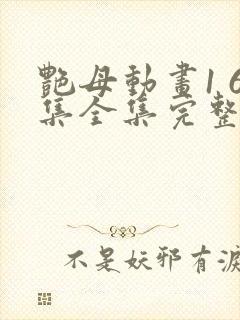 艷母動畫1 6
集全集完整
不是妖邪有淚